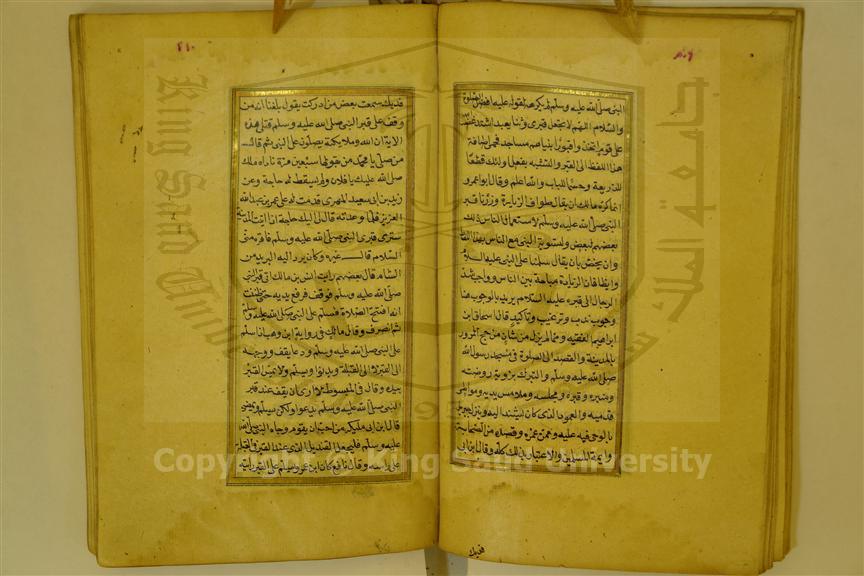 النبى صلى الله عليه وسلم لم يكرهه لقوله عليه افضل الصلوة
والسلام اللهم لا تجعل قبرى وثنا يعبد اشتد غضب الله
على قوم اتخذوا قبور انبيائهم مساجد فحمى اضافة
هذا اللفظ الى القبر والتشبه بفعل اولئك قطعا
للذريعة وحسما للباب والله اعلم وقال ابو عمرو
انما كره مالك ان يقال طواف الزيارة وزرنا قبر
النبى صلى الله عليه وسلم لاستعمال الناس ذلك
بعضهم لبعض ولتسوية النبى مع الناس بهذا اللفظ
وان يخص بان يقال سلمنا على النبى عليه السلام
وايضا فان الزيارة مباحة بين الناس وواجب شد
الرحال الى قبره عليه السلام يريد بالوجوب هنا
وجوب ندب وترغيب وتاكيد قال اسحاق ابن
ابراهيم الفقيه ومما لم يزل من شان من حج المرور
بالمدينة والقصد الى الصلوة فى مسجد رسول الله
صلى الله عليه وسلم والتبرك برؤية روضته
ومنبره وقبره ومجلسه وملامس يديه ومواطئ
قدميه والعمود الذى كان يستند اليه وينزل جبريل
بالوحى فيه عليه وبمن عمره وقصده من الصحابة
وايمة المسلمين والاعتبار بذلك كله وقال ابن ابى
فديك
٢١٠
فديك سمعت بعض من ادركت يقول بلغنا انه من
وقف على قبر النبى صلى الله عليه وسلم فتلى هذه
الاية ان الله وملايكته يصلون على النبى ثم قال
من صلى يا محمد من يقولها سبعين مرة ناداه ملك
صلى الله عليك يا فلان ولم يسقط له حاجة وعن
زيد بن ابى سعيد المهرى قدمت على عمر بن عبد الله
العزيز فلما ودعته قال لى اليك حاجة اذا اتيت المدينة
سترى قبر النبى صلى الله عليه وسلم فاقره منى
السلام قال غيره وكان يبرد اليه البريد من
الشام قال بعضهم رايت انس بن مالك اتى قبر النبى
صلى الله عليه وسلم فوقف فرفع يديه حتى ظننت
انه افتتح الصلاة فسلم على النبى صلى الله عليه وسلم
ثم انصرف وقال مالك فى رواية ابن وهب اذا سلم
على النبى صلى الله عليه وسلم ودعا يقف ووجهه
الى القبر لا الى القبلة ويدنوا ويسلم ولا يمس القبر
بيده وقال فى المبسوط لا ارى ان يقف عند قبر
النبى صلى الله عليه وسلم يدعوا ولكن يسلم ويمضى
قال ابن ابى مليكة من احب ان يقوم وجاه النبى صلى الله
عليه وسلم فليجعل القنديل الذى عند القبر فى القبلة
على راسه وقال نافع كان ابن عمر يسلم على القبر رايته
King Saud University
جامعة الملك سعود
1957
Copyright © King Saud University